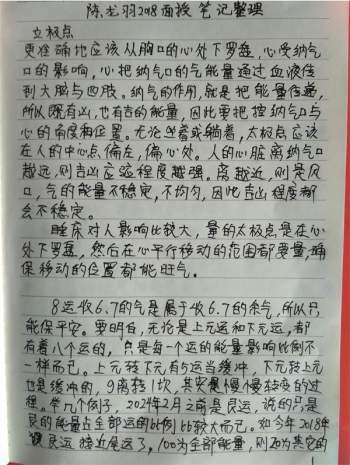 陈龙羽2018面授笔记整理
立极点
更准确地应该从胸口的心处下罗盘，心受纳气
口的影响，心把纳气口的气能量通过血液传
到大脑与四肢。纳气的作用，就是把能量传递，
所以既有凶，也有吉的能量，因此要把控纳气口与
心的角度和位置。无论坐着或躺着，太极点应该
在人的中心点偏左，偏心处。人的心脏离纳气口
越远，则吉凶应验程度越强。离越近，则受风
口，气的能量不稳定，不均匀，因此吉凶程度都
会不稳定。
睡床对人影响比较大，量的太极点是在心
处下罗盘，然后在心平行移动的范围都要量，确
保移动的位置都能旺气。
8运收6.7的气是属于收6.7的余气，所以只
能保平安。要明白，无论是上元运和下元运，都
有着八个运的，只是每一个运的能量影响比例不
一样而已。上元转下元有5运当缓冲，下元转上元
也是缓冲的，9离转1坎，其实是慢慢转变的过
程。举几个例子，2024年2月之前是艮运，说的只是
艮的能量占全部运的比例比较大而已。如今年2018年
艮运接近尾运了，100为全部能量，则20为其它的